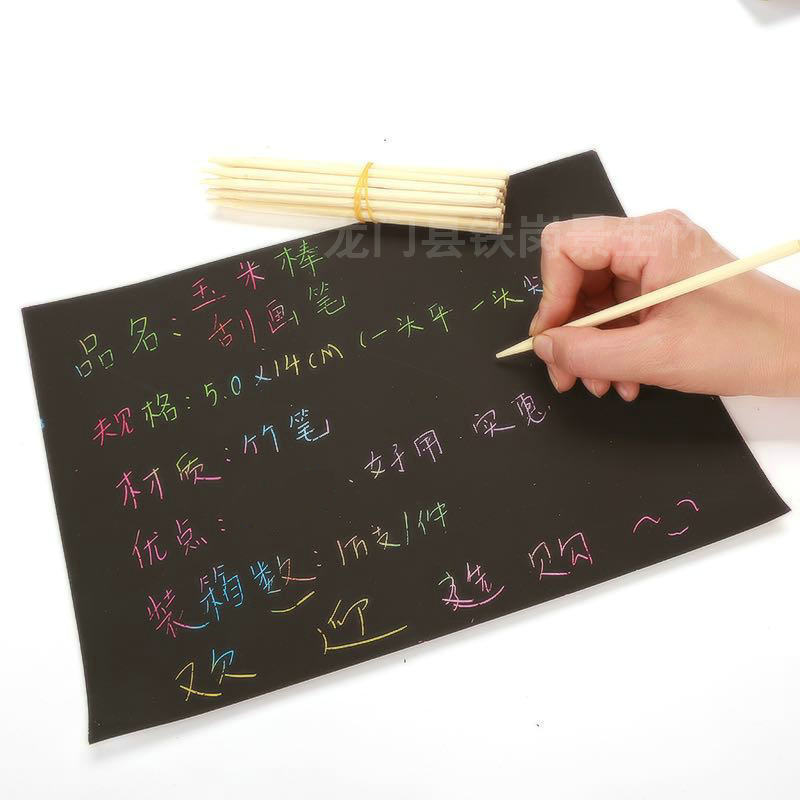 玉米棒
品名:刮画笔
规格:5.0×14CM(一头平一头尖
材质:竹笔
优点: 、好用.实惠.
装箱数:1万支/件
欢迎选购
龙门县铁岗景生竹